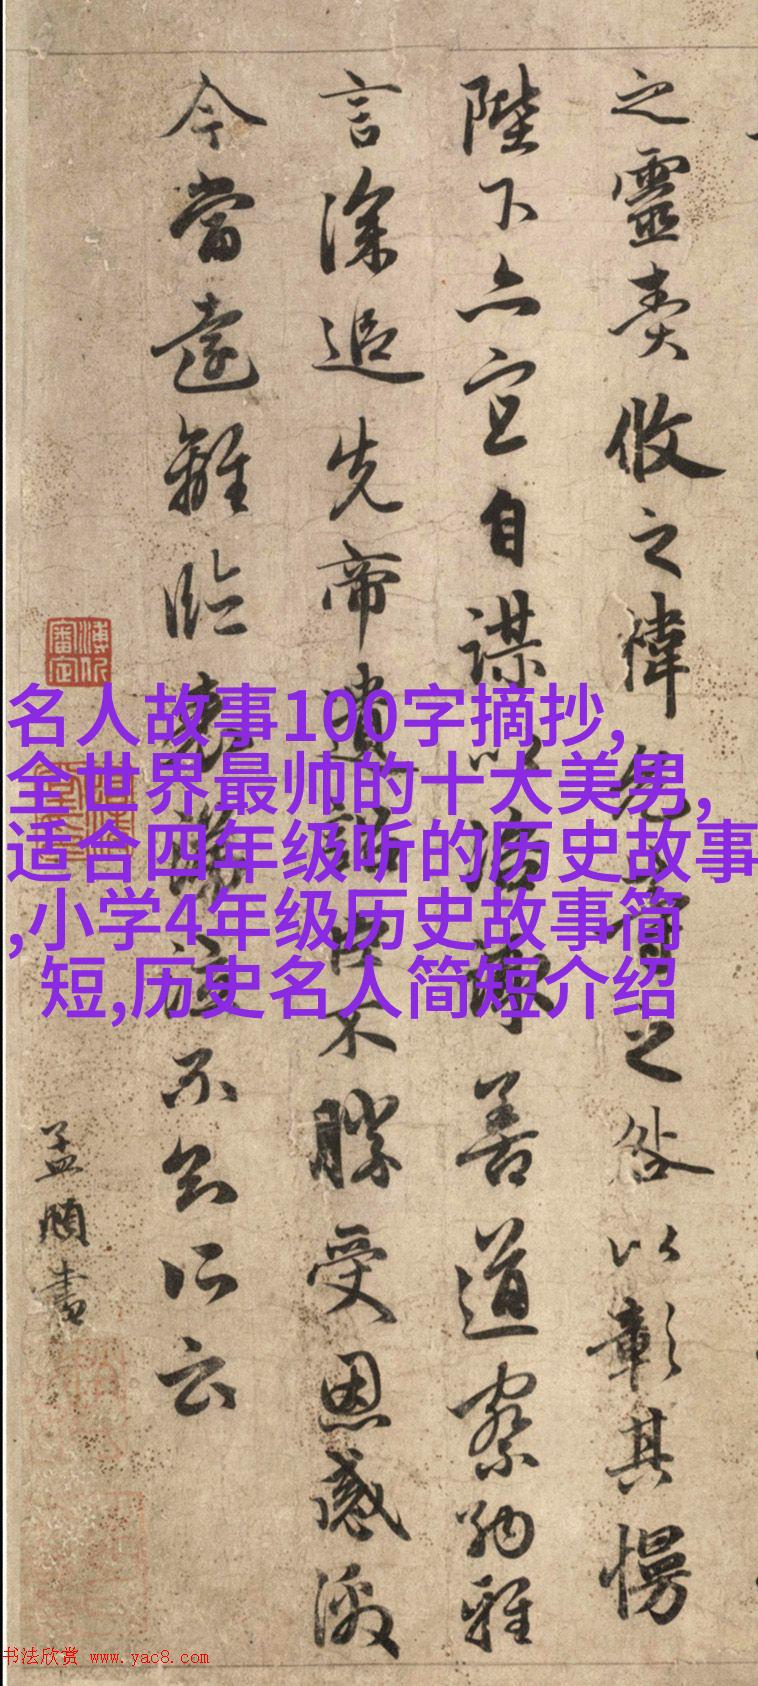 之靈責攸之禕允等之咎以彰其慢
陛下亦宜自謀以諮諏善道察納雅
言深追先帝遺詔臣不勝受恩感激
今當遠離臨表涕泣不知所云
孟頫書
名人故事100字摘抄,
全世界最帅的十大美男,
适合四年级听的历史故事
,小学4年级历史故事简
短,历史名人简短介绍
书法欣赏 www.yac8.com